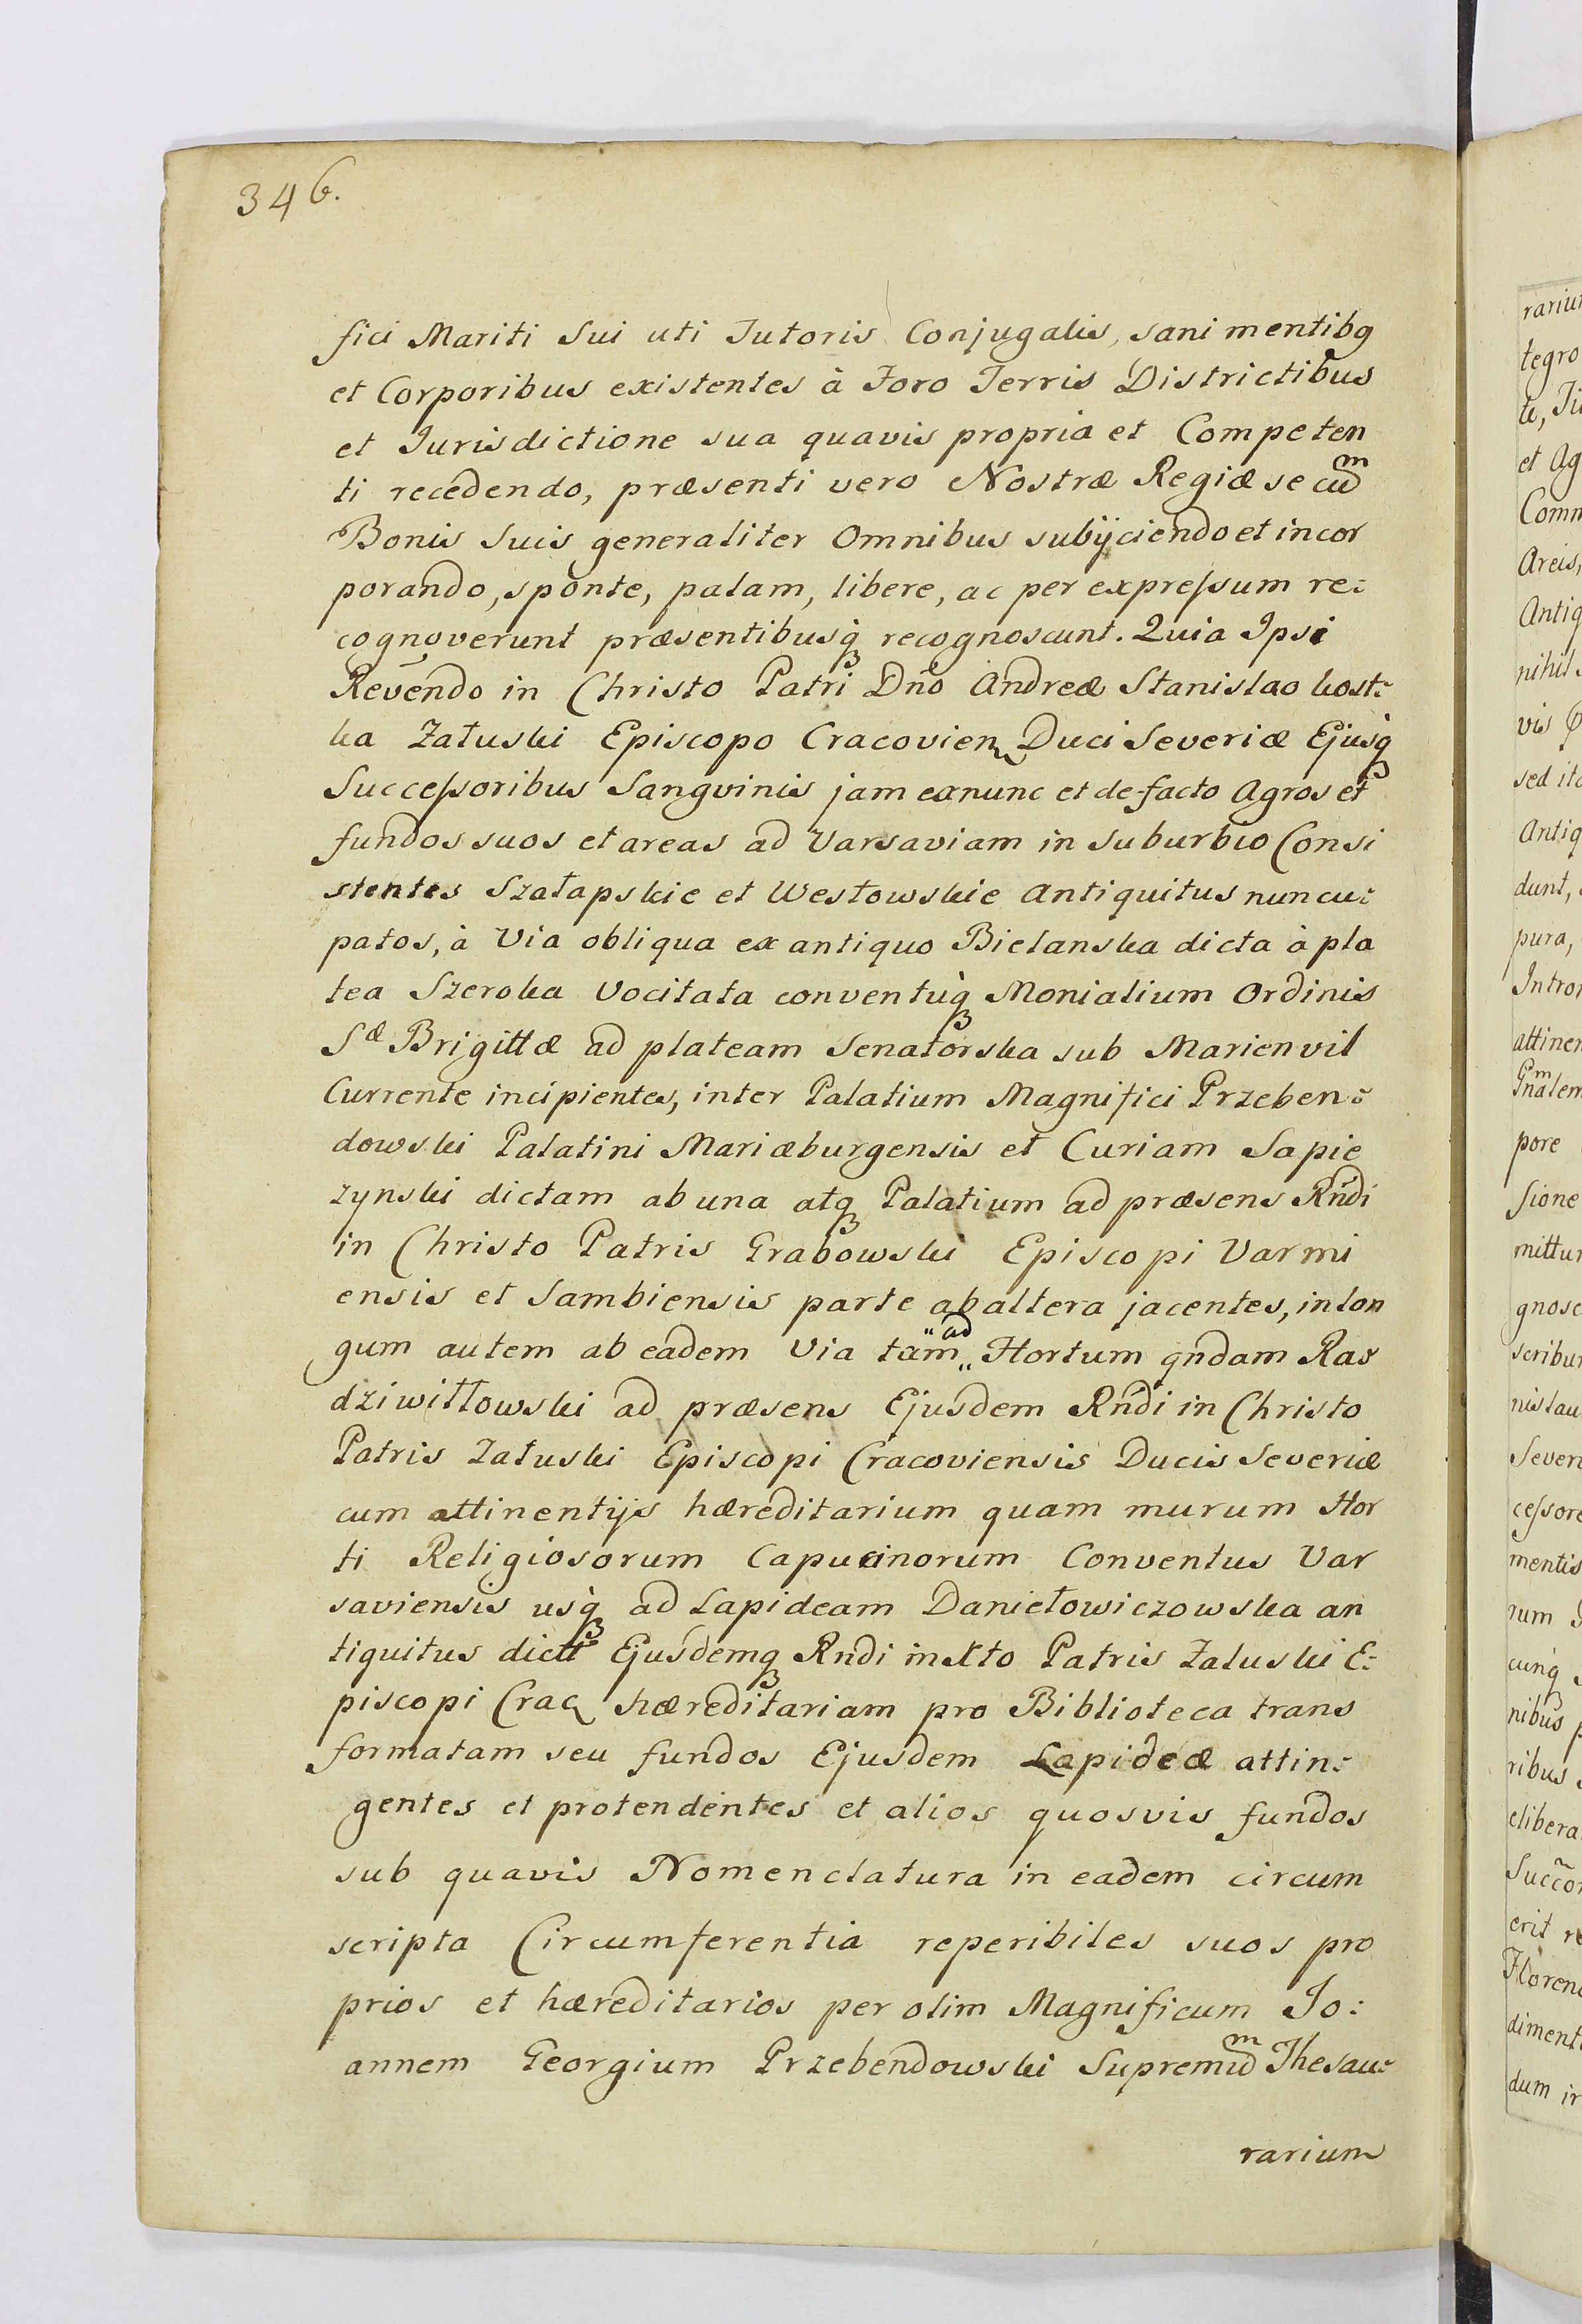 346.
fici Mariti Sui uti Tutoris Conjugalis, sani mentibq
et Corporibus existentes à Foro Terris Districtibus
et Jurisdictione sua quavis propria et Competen
ti recedendo, præsenti vero Nostræ Regiæ se cum
Bonis Suis generaliter Omnibus subijciendo et incor
porando, sponte, palam, libere, ac per expreſsum re:
cognoverunt præsentibusq recognoscunt. Quia Ipsi
Revēndo in Christo Patri Dno Andreæ Stanislao kost:
ka Załuski Episcopo Cracovien Duci Severiæ Ejusq
Succeſsoribus Sangvinis jam exnunc et de facto Agros et
fundos suos et areas ad Varsaviam in Suburbio Consi
stentes Szałapskie et Westowskie Antiquitus nuncu:
patos, à Via obliqua ex antiquo Bielanska dicta à pla
tea Szeroka Vocitata conventuq Monialium Ordinis
Sæ Brigittæ ad plateam Senatorska sub Marienvil
Currente incipientes, inter Palatium Magnifici Przeben:
dowski Palatini Mariæburgensis et Curiam Sapie
zynski dictam ab una atq Palatium ad præsens Rndi
in Christo Patris Grabowski Episcopi Varmi
ensis et Sambiensis parte ab altera jacentes, in lon
gum autem ab eadem Via tam ad Hortum qndam Ras
dziwiłłowski ad præsens Ejusdem Rndi in Christo
Patris Załuski Episcopi Cracoviensis Ducis Severiæ
cum attinentijs hæreditarium quam murum Hor
ti Religiosorum Capucinorum Conventus Var
saviensis usq ad Lapideam Daniełowiczowska an
tiquitus dict Ejusdemq Rndi in Xto Patris Zaluski E:
piscopi Crac hæreditariam pro Biblioteca trans
formatam seu fundos Ejusdem Lapideæ attin:
gentes et protendentes et alios quosvis fundos
sub quavis Nomenclatura in eadem circum
scripta Circumferentia reperibiles suos pro
prios et hæreditarios per olim Magnificum Jo:
annem Georgium Przebendowski Supremum Thesau:
rarium